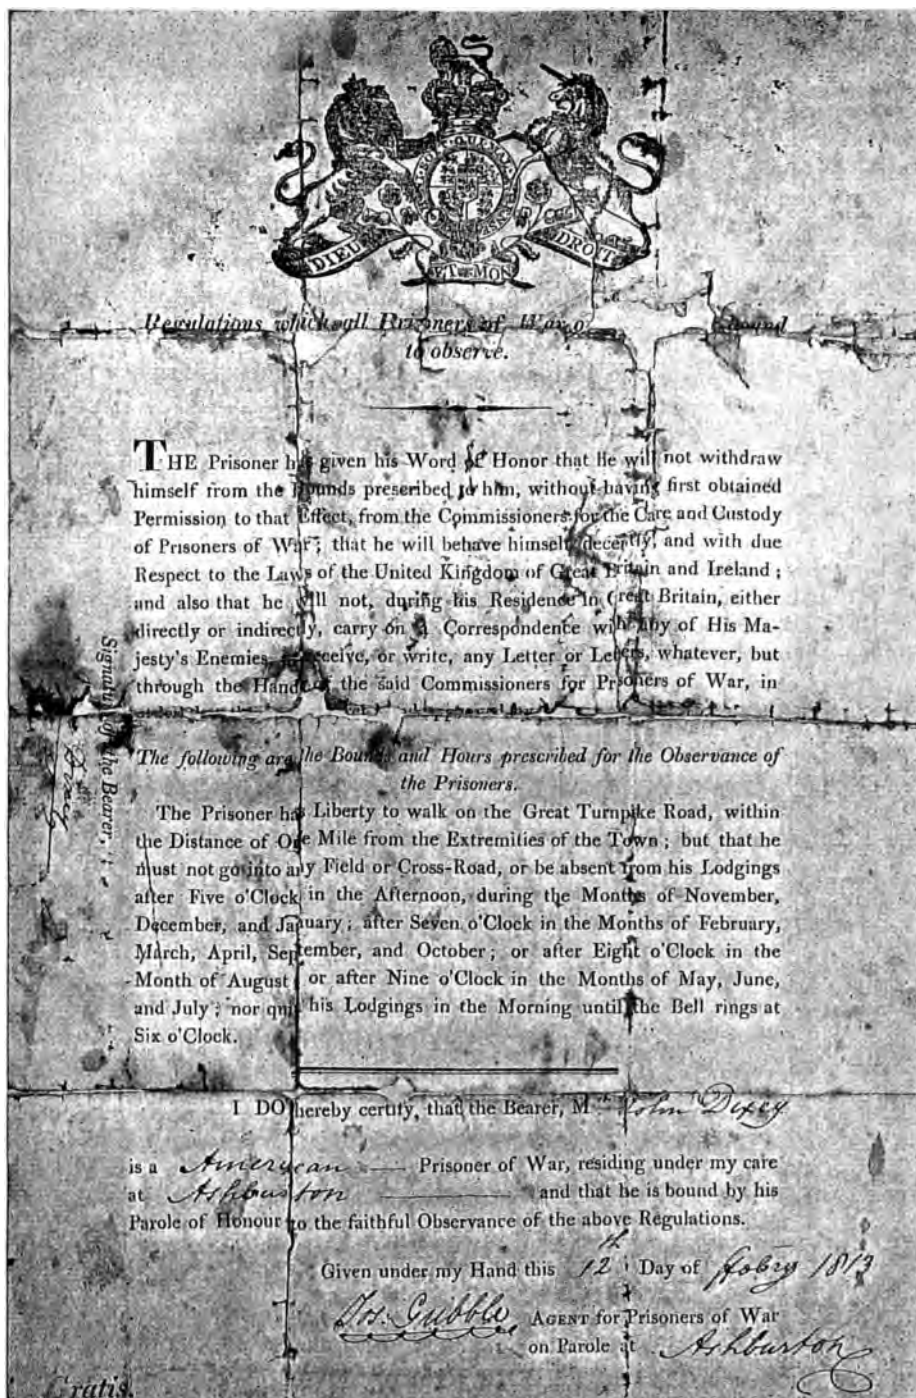 HONI SOIT QUI MAL Y PENSE
DIEU ET MON DROIT
Regulations which all Prisoners of War o
to observe.
THE Prisoner has given his Word of Honor that he will not withdraw
himself from the Bounds prescribed to him, without having first obtained
Permission to that Effect, from the Commissioners for the Care and Custody
of Prisoners of War; that he will behave himself decently, and with due
Respect to the Laws of the United Kingdom of Great Britain and Ireland;
and also that he will not, during his Residence in Great Britain, either
directly or indirectly, carry on a Correspondence with any of His Ma-
jesty's Enemies, receive, or write, any Letter or Letters, whatever, but
through the Hands of the said Commissioners for Prisoners of War, in
The following are the Bounds and Hours prescribed for the Observance of
the Prisoners.
The Prisoner has Liberty to walk on the Great Turnpike Road, within
the Distance of One Mile from the Extremities of the Town; but that he
must not go into any Field or Cross-Road, or be absent from his Lodgings
after Five o'Clock in the Afternoon, during the Months of November,
December, and January; after Seven o'Clock in the Months of February,
March, April, September, and October; or after Eight o'Clock in the
Month of August or after Nine o'Clock in the Months of May, June,
and July; nor quit his Lodgings in the Morning until the Bell rings at
Six o'Clock.
I DO hereby certify, that the Bearer, Mr. John Dixey
is a American Prisoner of War, residing under my care
at Ashburton and that he is bound by his
Parole of Honour to the faithful Observance of the above Regulations.
Given under my Hand this 12th Day of Febry 1813
Jos. Gribble AGENT for Prisoners of War
on Parole at Ashburton
Gratis.
Signature of the Bearer,